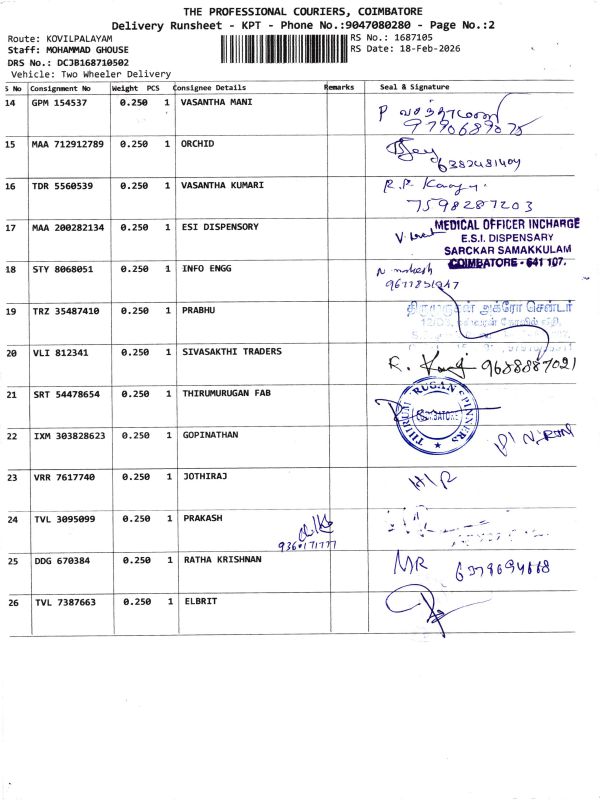 THE PROFESSIONAL COURIERS, COIMBATORE
Delivery Runsheet - KPT - Phone No.:9047080280 - Page No.:2
Route: KOVILPALAYAM RS No.: 1687105
Staff: MOHAMMAD GHOUSE RS Date: 18-Feb-2026
DRS No.: DCJB168710502
Vehicle: Two Wheeler Delivery
S No Consignment No Weight PCS Consignee Details Remarks Seal & Signature
14 GPM 154537 0.250 1 VASANTHA MANI P வசந்தாமணி
15 MAA 712912789 0.250 1 ORCHID
6382481409
16 TDR 5560539 0.250 1 VASANTHA KUMARI R.P.
7598287203
17 MAA 200282134 0.250 1 ESI DISPENSORY MEDICAL OFFICER INCHARGE
E.S.I. DISPENSARY
SARCKAR SAMAKKULAM
COIMBATORE - 641 107.
18 STY 8068051 0.250 1 INFO ENGG
19 TRZ 35487410 0.250 1 PRABHU திருமுருகன் அக்ரோ சென்டர்
20 VLI 812341 0.250 1 SIVASAKTHI TRADERS R. 9688887021
21 SRT 54478654 0.250 1 THIRUMURUGAN FAB THIRUMURUGAN SPINNERS
COIMBATORE
22 IXM 303828623 0.250 1 GOPINATHAN
23 VRR 7617740 0.250 1 JOTHIRAJ H/R
24 TVL 3095099 0.250 1 PRAKASH
25 DDG 670384 0.250 1 RATHA KRISHNAN MR
26 TVL 7387663 0.250 1 ELBRIT